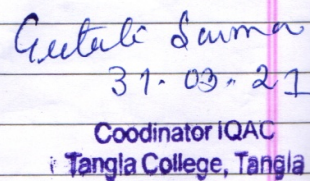 Gitali Sarma
31-03-21
Coodinator IQAC
Tangla College, Tangla